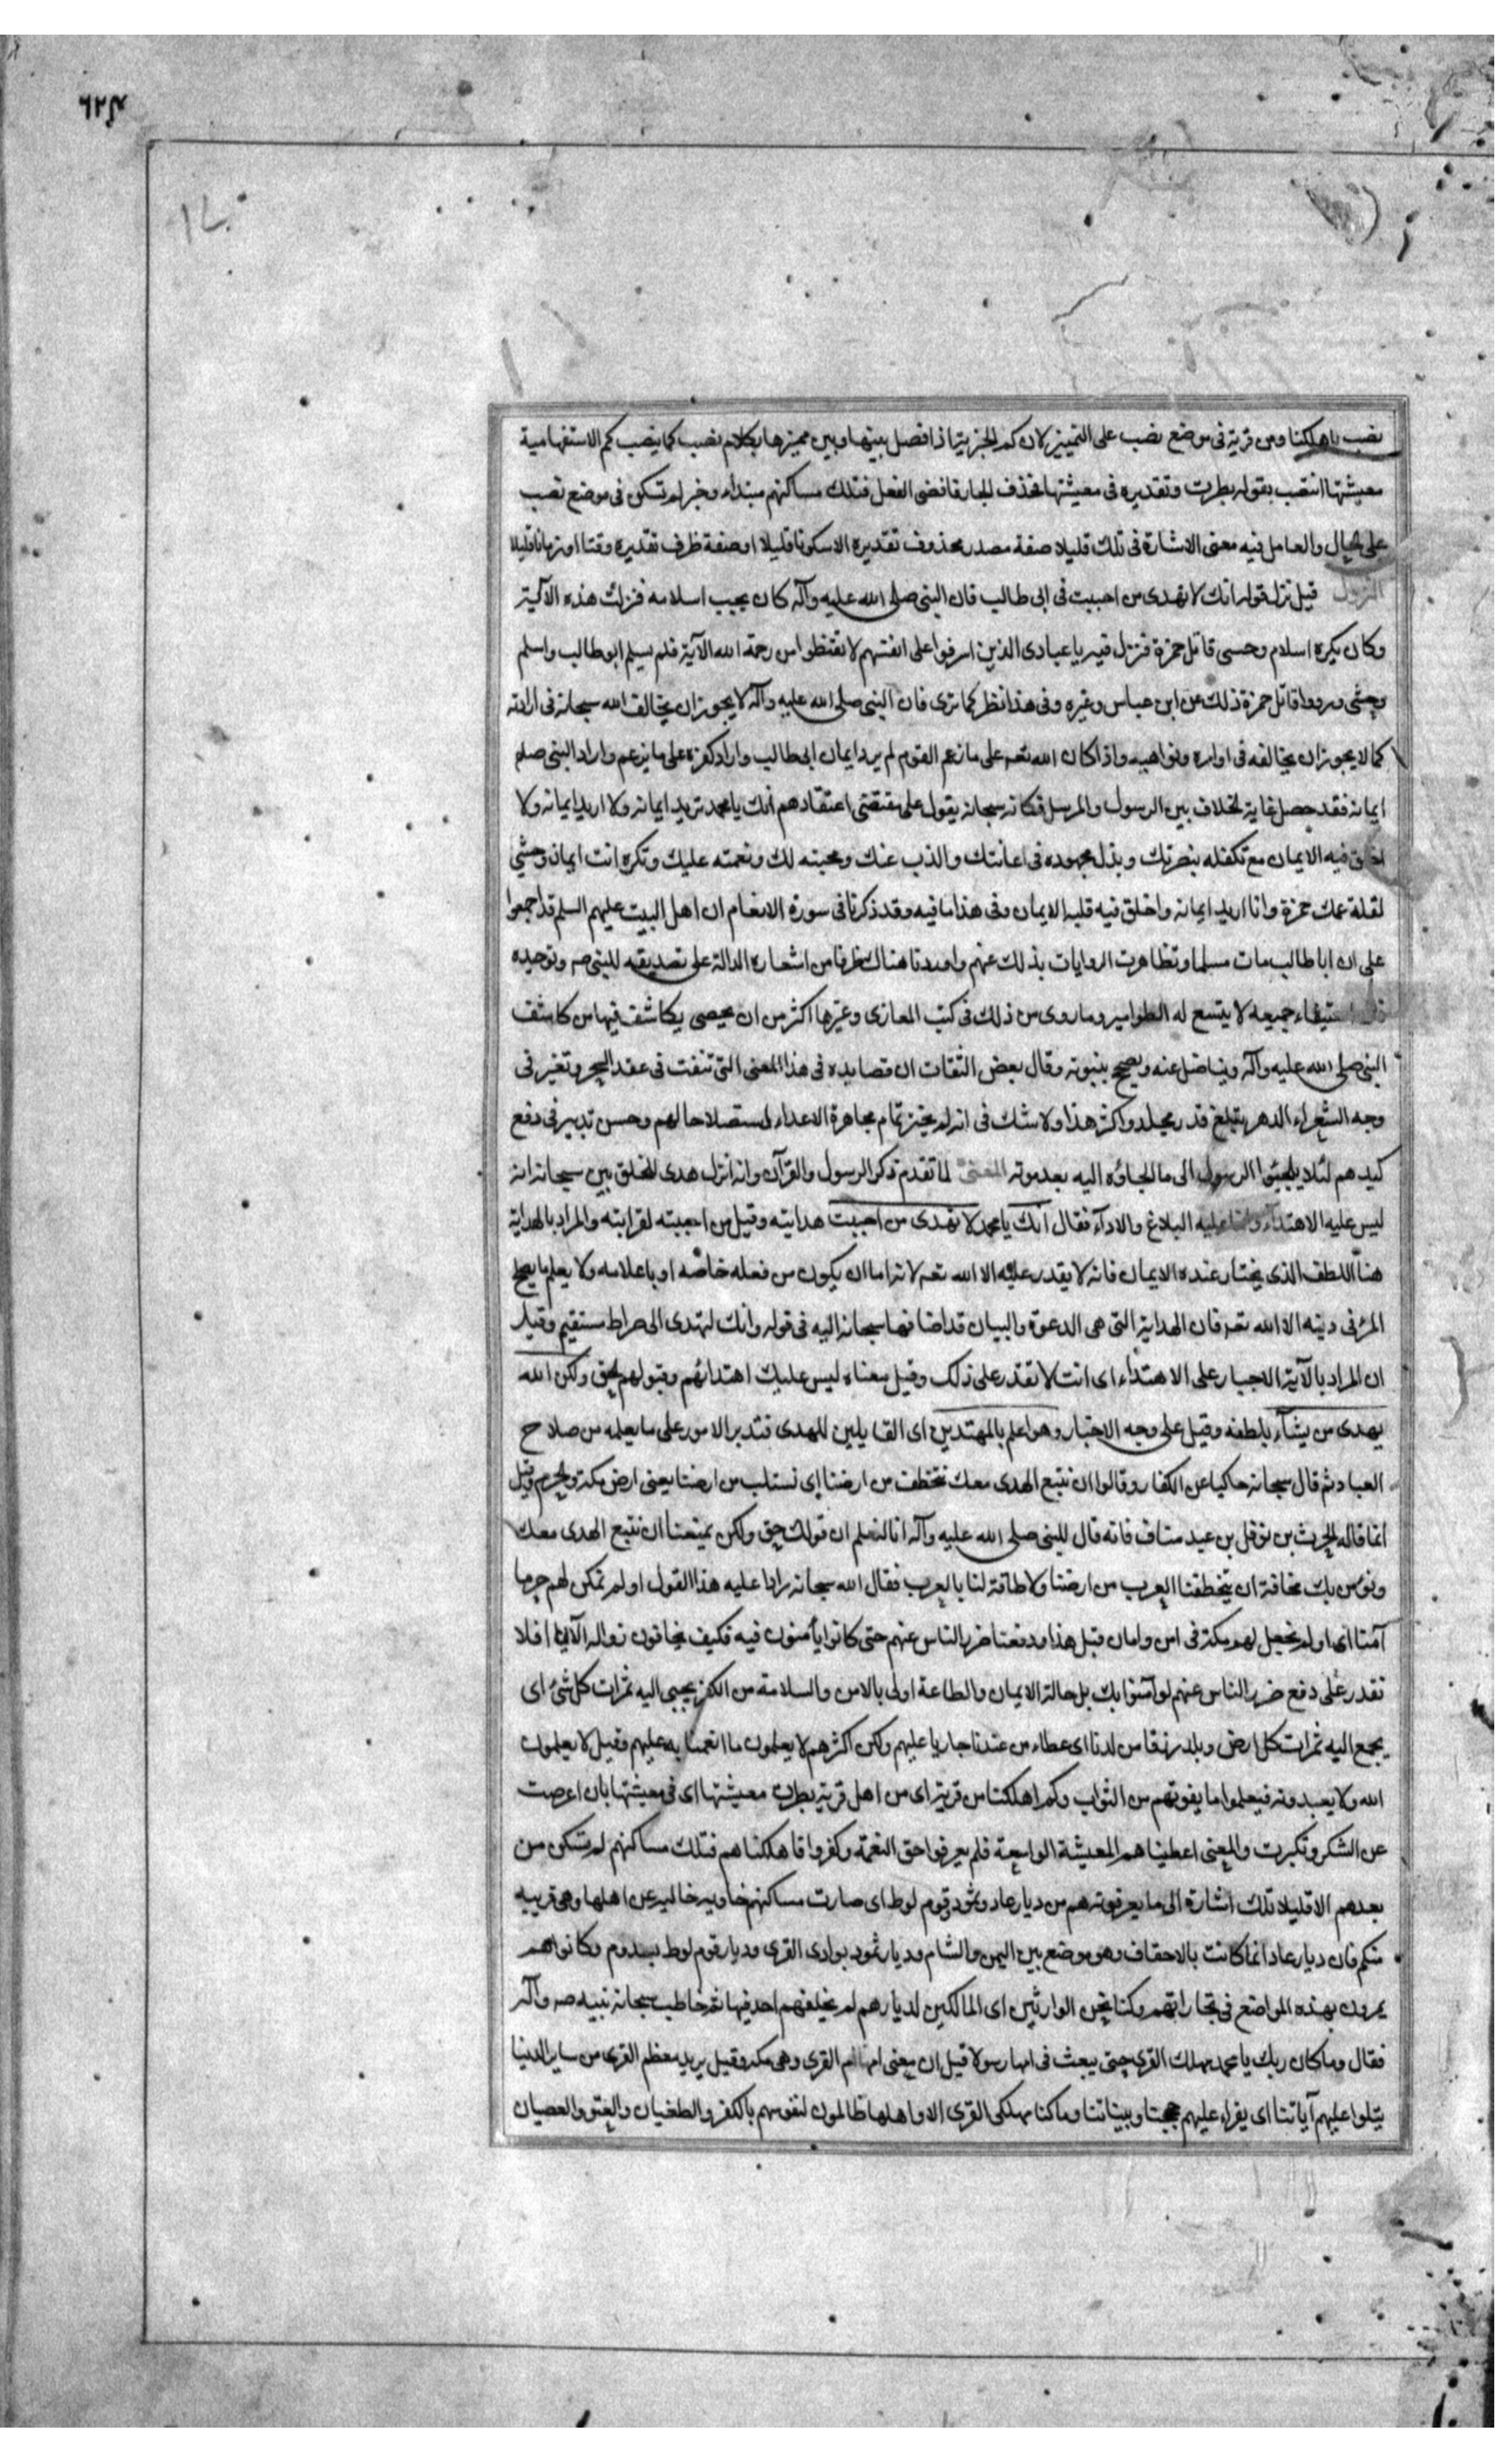 ٦٢٣
نصب باهلكنا ومن قرية فى موضع نصب على التمييز لان كم الخبرية اذا فصل بينها وبين مميزها بكلام نصب كما ينصب كم الاستفهامية
معيشتها انتصب بقوله بطرت وتقديره فى معيشتها فحذف الجار فافضى الفعل فتلك مساكنهم مبتداء وخبر لم تسكن فى موضع نصب
على الحال والعامل فيه معنى الاشارة فى تلك قليلا صفة مصدر محذوف تقديره الا سكونا قليلا او صفة ظرف تقديره وقتا او زمانا قليلا
النزول قيل نزل قوله انك لا تهدى من احببت فى ابى طالب فان النبى صلى الله عليه وآله كان يحب اسلامه فنزلت هذه الآية
وكان يكره اسلام وحسى قاتل حمزة فنزل فيه يا عبادى الذين اسرفوا على انفسهم لا تقنطوا من رحمة الله الآية فلم يسلم ابو طالب واسلم
وحشى ورووا قاتل حمزة ذلك عن ابن عباس وغيره وفى هذا نظر كما ترى فان النبى صلى الله عليه وآله لا يجوز ان يخالف الله سبحانه فى ارادته
كما لا يجوز ان يخالفه فى اوامره ونواهيه واذا كان الله تعه على ما زعم القوم لم يرد ايمان ابى طالب واراد كفره على ما يزعم واراد النبى صلم
ايمانه فقد حصل غاية الخلاف بين الرسول والمرسل فكانه سبحانه يقول على مقتضى اعتقادهم انك يا محمد تريد ايمانه ولا اريد ايمانه ولا
اخلق فيه الايمان مع تكفله بنصرتك وبذل مجهوده فى اعانتك والذب عنك ومحبته لك ونعمته عليك وتكره انت ايمان وحشى
لقتله عمك حمزة وانا اريد ايمانه واخلق فيه قلبه الايمان وفى هذا ما فيه وقد ذكرنا فى سورة الانعام ان اهل البيت عليهم السلم قد اجمعوا
على ان ابا طالب مات مسلما وتظاهرت الروايات بذلك عنهم واوردنا هناك طرفا من اشعاره الدالة على تصديقه للنبى صه وتوحيده
فان استيفاء جميعه لا يتسع له الطوامير وما روى من ذلك فى كتب المغازى وغيرها اكثر من ان يحصى يكاشف فيها من كاشف
النبى صلى الله عليه وآله ويناضل عنه ويصحح بنبوته وقال بعض الثقات ان قصايده فى هذا المعنى التى تنفث فى عقد السحر وتغير فى
وجه الشعراء الدهر يبلغ قدر مجلد واكثر هذا ولا شك فى انه لم يختر تمام مجاهرة الاعداء لستصلاحا لهم وحسن تدبير فى دفع
كيدهم لئلا يلجئوا الرسول الى ما الجاؤه اليه بعد موته المعنى لما تقدم ذكر الرسول والقرآن وانه انزل هدى للخلق بين سبحانه انه
ليس عليه الاهتداء وانما عليه البلاغ والادآء فقال انك يا محمد لا تهدى من احببت هدايته وقيل من احببته لقرابته والمراد بالهداية
هنا اللطف الذى يختار عنده الايمان فانه لا يقدر عليه الا الله تعه لانه اما ان يكون من فعله خاصة او باعلامه ولا يعلم ما يصلح
المرء فى دينه الا الله تعه فان الهداية التى هى الدعوة والبيان قد اضافها سبحانه اليه فى قوله وانك لتهدى الى صراط مستقيم وقيل
ان المراد بالآية الاجبار على الاهتداء اى انت لا تقدر على ذلك وقيل معناه ليس عليك اهتدائهم وقبولهم الحق ولكن الله
يهدى من يشآء بلطفه وقيل على وجه الاجبار وهو اعلم بالمهتدين اى القايلين للهدى فتدبر الامور على ما يعلمه من صلاح
العباد ثم قال سبحانه حاكيا عن الكفار وقالوا ان نتبع الهدى معك نتخطف من ارضنا اى نستلب من ارضنا يعنى ارض مكة والحرم وقيل
انما قاله الحرث بن نوفل بن عبد مناف فانه قال للنبى صلى الله عليه وآله انا لنعلم ان قولك حق ولكن يمنعنا ان نتبع الهدى معك
ونؤمن بك مخافة ان يتخطفنا العرب من ارضنا ولا طاقة لنا بالعرب فقال الله سبحانه رادا عليه هذا القول اولم نمكن لهم حرما
آمنا اى اولم نجعل لهم مكة فى امن وامان قبل هذا ودفعنا ضرر الناس عنهم حتى كانوا يأمنون فيه فكيف يخافون زواله الآن افلا
نقدر على دفع ضرر الناس عنهم لو آمنوا بك بل حالة الايمان والطاعة اولى بالامن والسلامة من الكفر يجبى اليه ثمرات كل شئ اى
يجمع اليه ثمرات كل ارض وبلد رزقا من لدنا اى عطاء من عندنا جاريا عليهم ولكن اكثرهم لا يعلمون ما انعمنا به عليهم وقيل لا يعلمون
الله ولا يعبدونه فيعلموا ما يفوتهم من الثواب وكم اهلكنا من قرية اى من اهل قرية بطرت معيشتها اى فى معيشتها بان اعرضت
عن الشكر وتكبرت والمعنى اعطيناهم المعيشة الواسعة فلم يعرفوا حق النعمة وكفروا فاهلكناهم فتلك مساكنهم لم تسكن من
بعدهم الا قليلا تلك اشارة الى ما يعرفونه هم من ديار عاد وثمود وقوم لوط اى صارت مساكنهم خاوية خالية عن اهلها وهى قريبه
منكم فان ديار عاد انما كانت بالاحقاف وهو موضع بين اليمن والشام وديار ثمود بوادى القرى وديار قوم لوط بسدوم وكانوا هم
يمرون بهذه المواضع فى تجاراتهم وكنا نحن الوارثين اى المالكين لديارهم لم يخلفهم احد فيها ثم خاطب سبحانه نبيه صه وآله
فقال وما كان ربك يا محمد مهلك القرى حتى يبعث فى امها رسولا قيل ان معنى امها ام القرى وهى مكه وقيل يريد معظم القرى من ساير الدنيا
يتلوا عليهم آياتنا اى يقراء عليهم حجتنا وبيناتنا وما كنا مهلكى القرى الا واهلها ظالمون لنفوسهم بالكفر والطغيان والعتو والعصيان